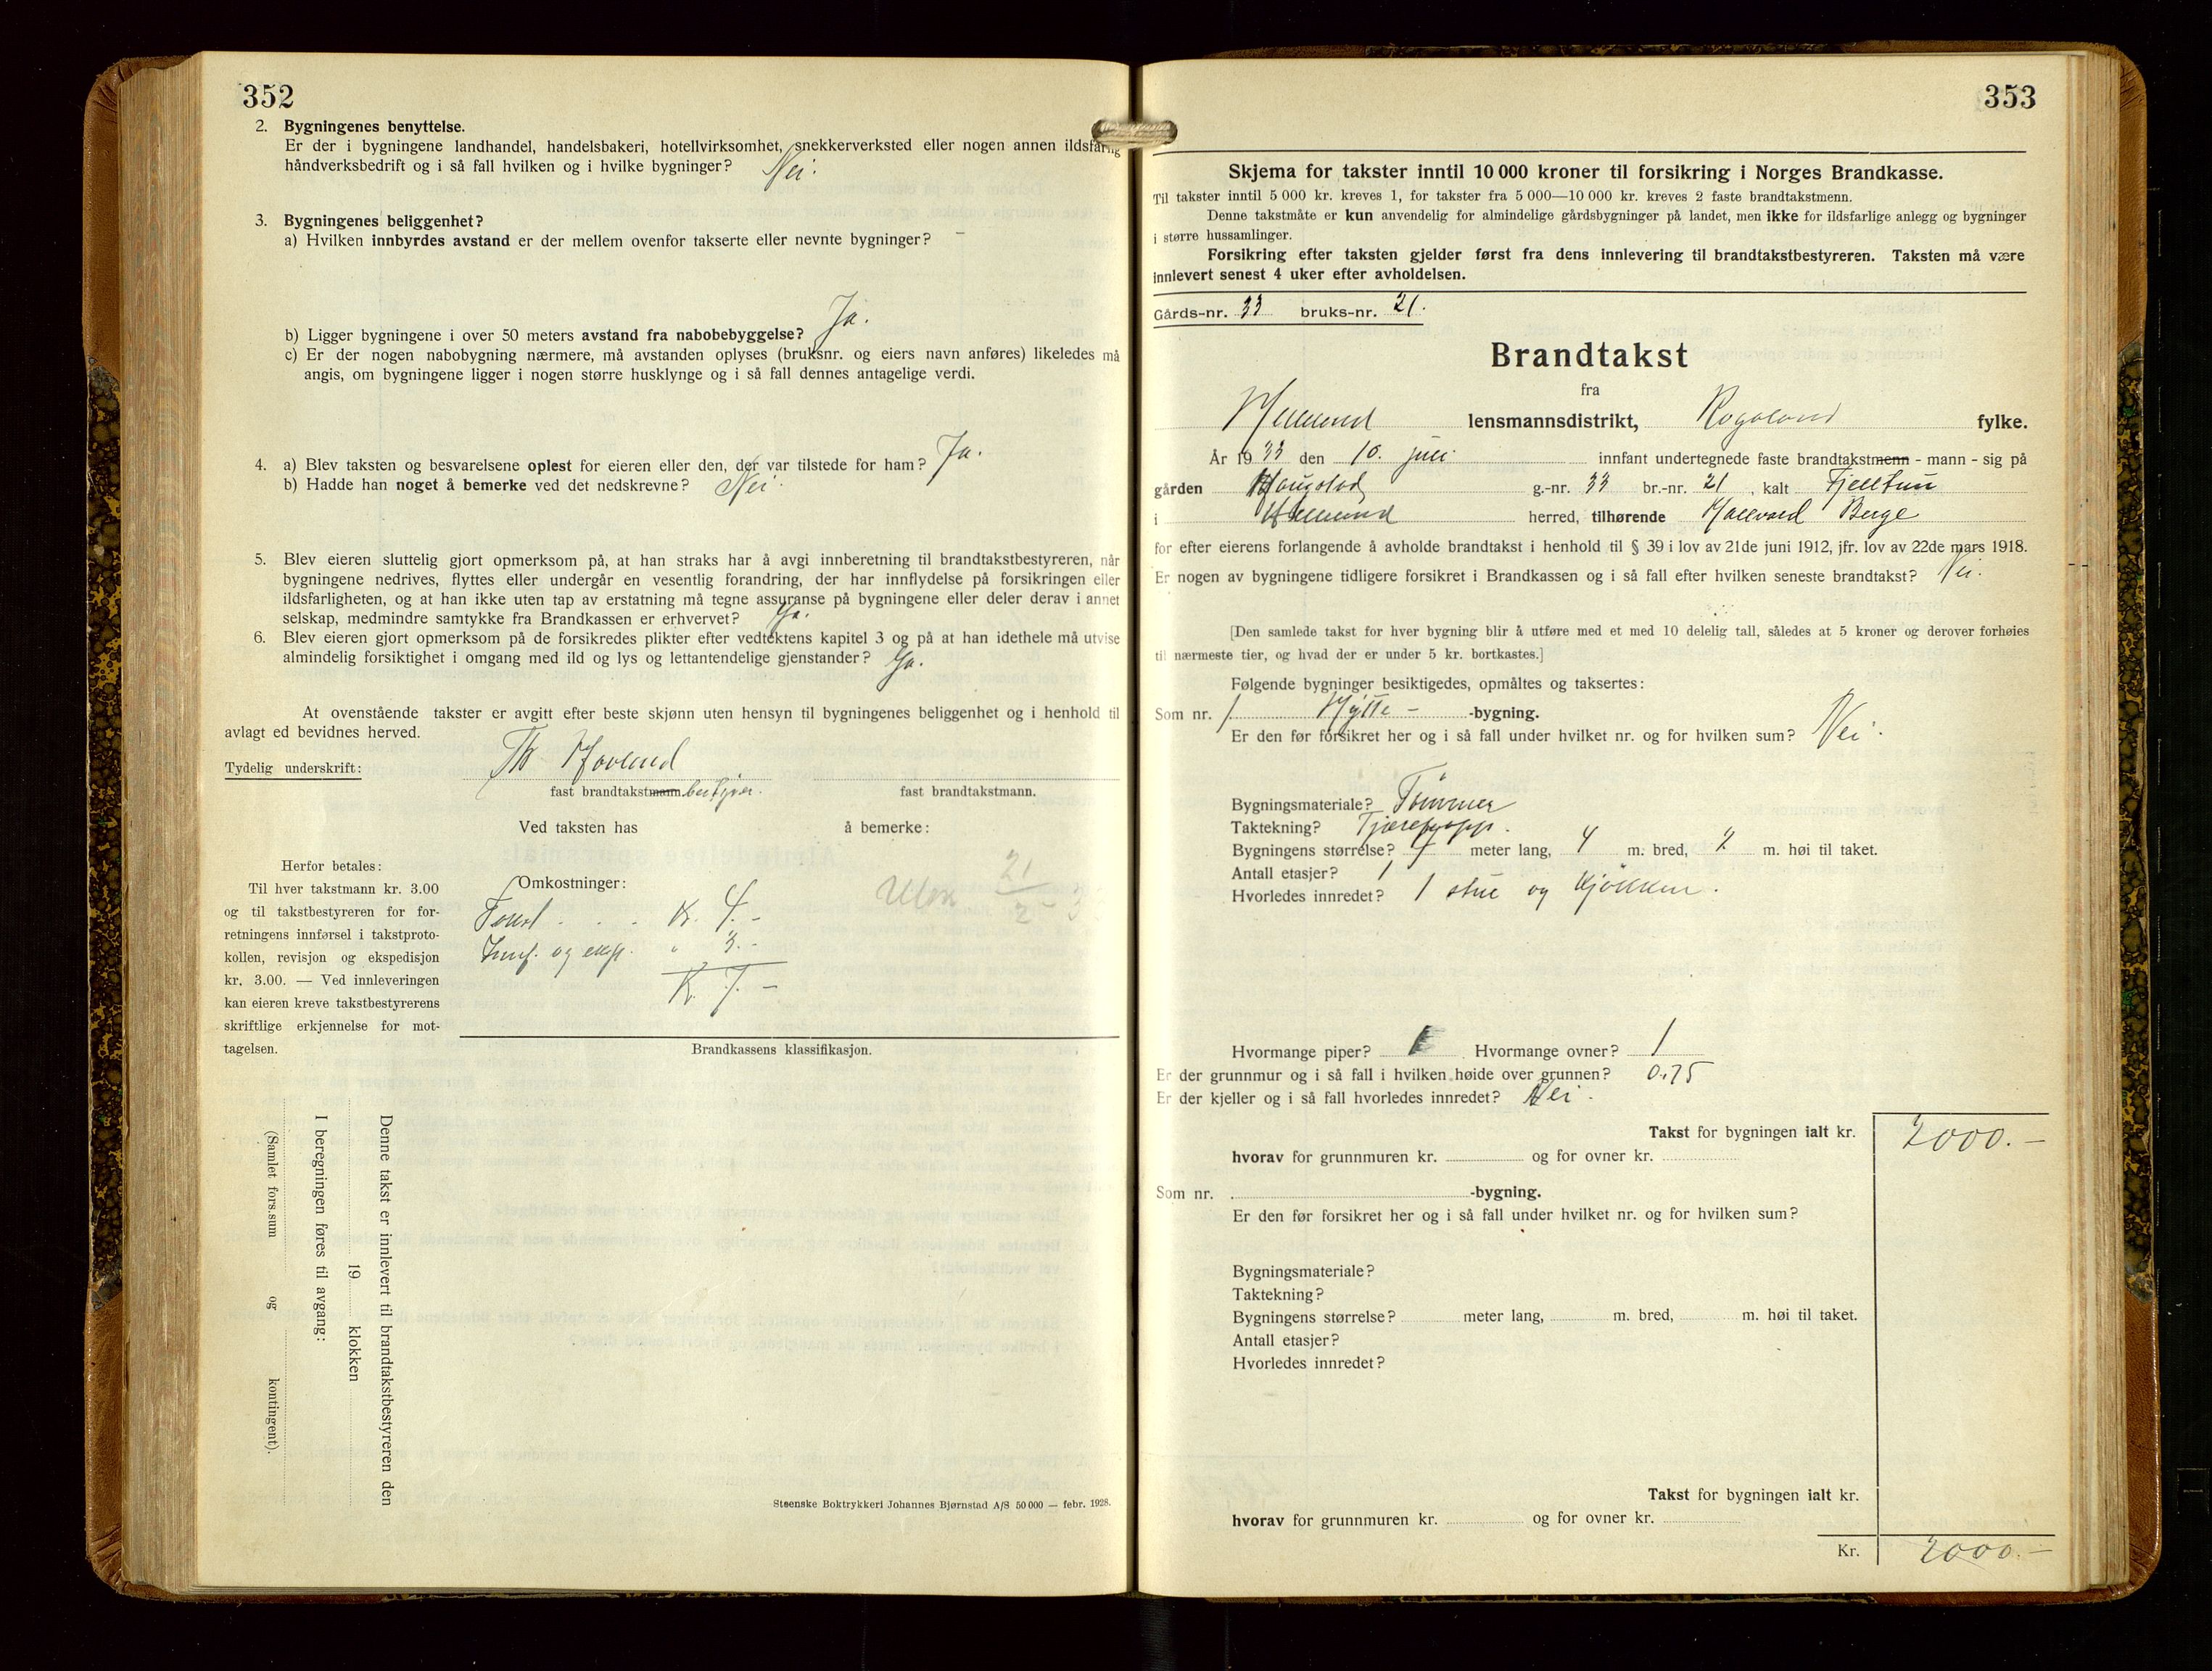 352
2. Bygningenes benyttelse.
Er der i bygningene landhandel, handelsbakeri, hotellvirksomhet, snekkerverksted eller nogen annen ildsfarlig
håndverksbedrift og i så fall hvilken og i hvilke bygninger? Nei.
3. Bygningenes beliggenhet?
a) Hvilken innbyrdes avstand er der mellem ovenfor takserte eller nevnte bygninger? –
b) Ligger bygningene i over 50 meters avstand fra nabobebyggelse? Ja.
c) Er der nogen nabobygning nærmere, må avstanden oplyses (bruksnr. og eiers navn anføres) likeledes må
angis, om bygningene ligger i nogen større husklynge og i så fall dennes antagelige verdi.
4. a) Blev taksten og besvarelsene oplest for eieren eller den, der var tilstede for ham? Ja.
b) Hadde han noget å bemerke ved det nedskrevne? Nei.
5. Blev eieren sluttelig gjort opmerksom på, at han straks har å avgi innberetning til brandtakstbestyreren, når
bygningene nedrives, flyttes eller undergår en vesentlig forandring, der har innflydelse på forsikringen eller
ildsfarligheten, og at han ikke uten tap av erstatning må tegne assuranse på bygningene eller deler derav i annet
selskap, medmindre samtykke fra Brandkassen er erhvervet? Ja.
6. Blev eieren gjort opmerksom på de forsikredes plikter efter vedtektens kapitel 3 og på at han idethele må utvise
almindelig forsiktighet i omgang med ild og lys og lettantendelige gjenstander? Ja.
At ovenstående takster er avgitt efter beste skjønn uten hensyn til bygningenes beliggenhet og i henhold til
avlagt ed bevidnes herved.
Tydelig underskrift: Th Hovland
fast brandtakstmann. bestyrer. fast brandtakstmann.
Ved taksten has å bemerke:
Herfor betales:
Til hver takstmann kr. 3.00
og til takstbestyreren for for-
retningens innførsel i takstproto-
kollen, revisjon og ekspedisjon
kr. 3.00. — Ved innleveringen
kan eieren kreve takstbestyrerens
skriftlige erkjennelse for mot-
tagelsen.
Omkostninger:
K. 4. -
og eksp. " 3. -
K. 7. -
21/2 - 3
Brandkassens klassifikasjon.
Denne takst er innlevert til brandtakstbestyreren den
19 klokken
I beregningen føres til avgang:
(Samlet fors.sum og kontingent).
Steenske Boktrykkeri Johannes Bjørnstad A/S 50 000 — febr. 1928.
353
Skjema for takster inntil 10 000 kroner til forsikring i Norges Brandkasse.
Til takster inntil 5 000 kr. kreves 1, for takster fra 5 000—10 000 kr. kreves 2 faste brandtakstmenn.
Denne takstmåte er kun anvendelig for almindelige gårdsbygninger på landet, men ikke for ildsfarlige anlegg og bygninger
i større hussamlinger.
Forsikring efter taksten gjelder først fra dens innlevering til brandtakstbestyreren. Taksten må være
innlevert senest 4 uker efter avholdelsen.
Gårds-nr. 33 bruks-nr. 21.
Brandtakst
fra
lensmannsdistrikt, Rogaland fylke.
År 1933 den 10. juli. innfant undertegnede faste brandtakstmenn - mann - sig på
gården Haugstad g.-nr. 33 br.-nr. 21, kalt Fjelltun
i herred, tilhørende Hallvard Berge
for efter eierens forlangende å avholde brandtakst i henhold til § 39 i lov av 21de juni 1912, jfr. lov av 22de mars 1918.
Er nogen av bygningene tidligere forsikret i Brandkassen og i så fall efter hvilken seneste brandtakst? Nei.
[Den samlede takst for hver bygning blir å utføre med et med 10 delelig tall, således at 5 kroner og derover forhøies
til nærmeste tier, og hvad der er under 5 kr. bortkastes.]
Følgende bygninger besiktigedes, opmåltes og taksertes:
Som nr. 1 Hytte - -bygning.
Er den før forsikret her og i så fall under hvilket nr. og for hvilken sum? Nei.
Bygningsmateriale? Tømmer
Taktekning? Tjærepapp.
Bygningens størrelse? 7 meter lang, 4 m. bred, 2 m. høi til taket.
Antall etasjer? 1
Hvorledes innredet? 1 stue og kjøkken.
Hvormange piper? 1 Hvormange ovner? 1
Er der grunnmur og i så fall i hvilken høide over grunnen? 0.75
Er der kjeller og i så fall hvorledes innredet? Nei.
Takst for bygningen ialt kr. 2000.—
hvorav for grunnmuren kr. og for ovner kr.
Som nr. -bygning.
Er den før forsikret her og i så fall under hvilket nr. og for hvilken sum?
Bygningsmateriale?
Taktekning?
Bygningens størrelse? meter lang, m. bred, m. høi til taket.
Antall etasjer?
Hvorledes innredet?
Takst for bygningen ialt kr.
hvorav for grunnmuren kr. og for ovner kr.
Kr. 2000.—